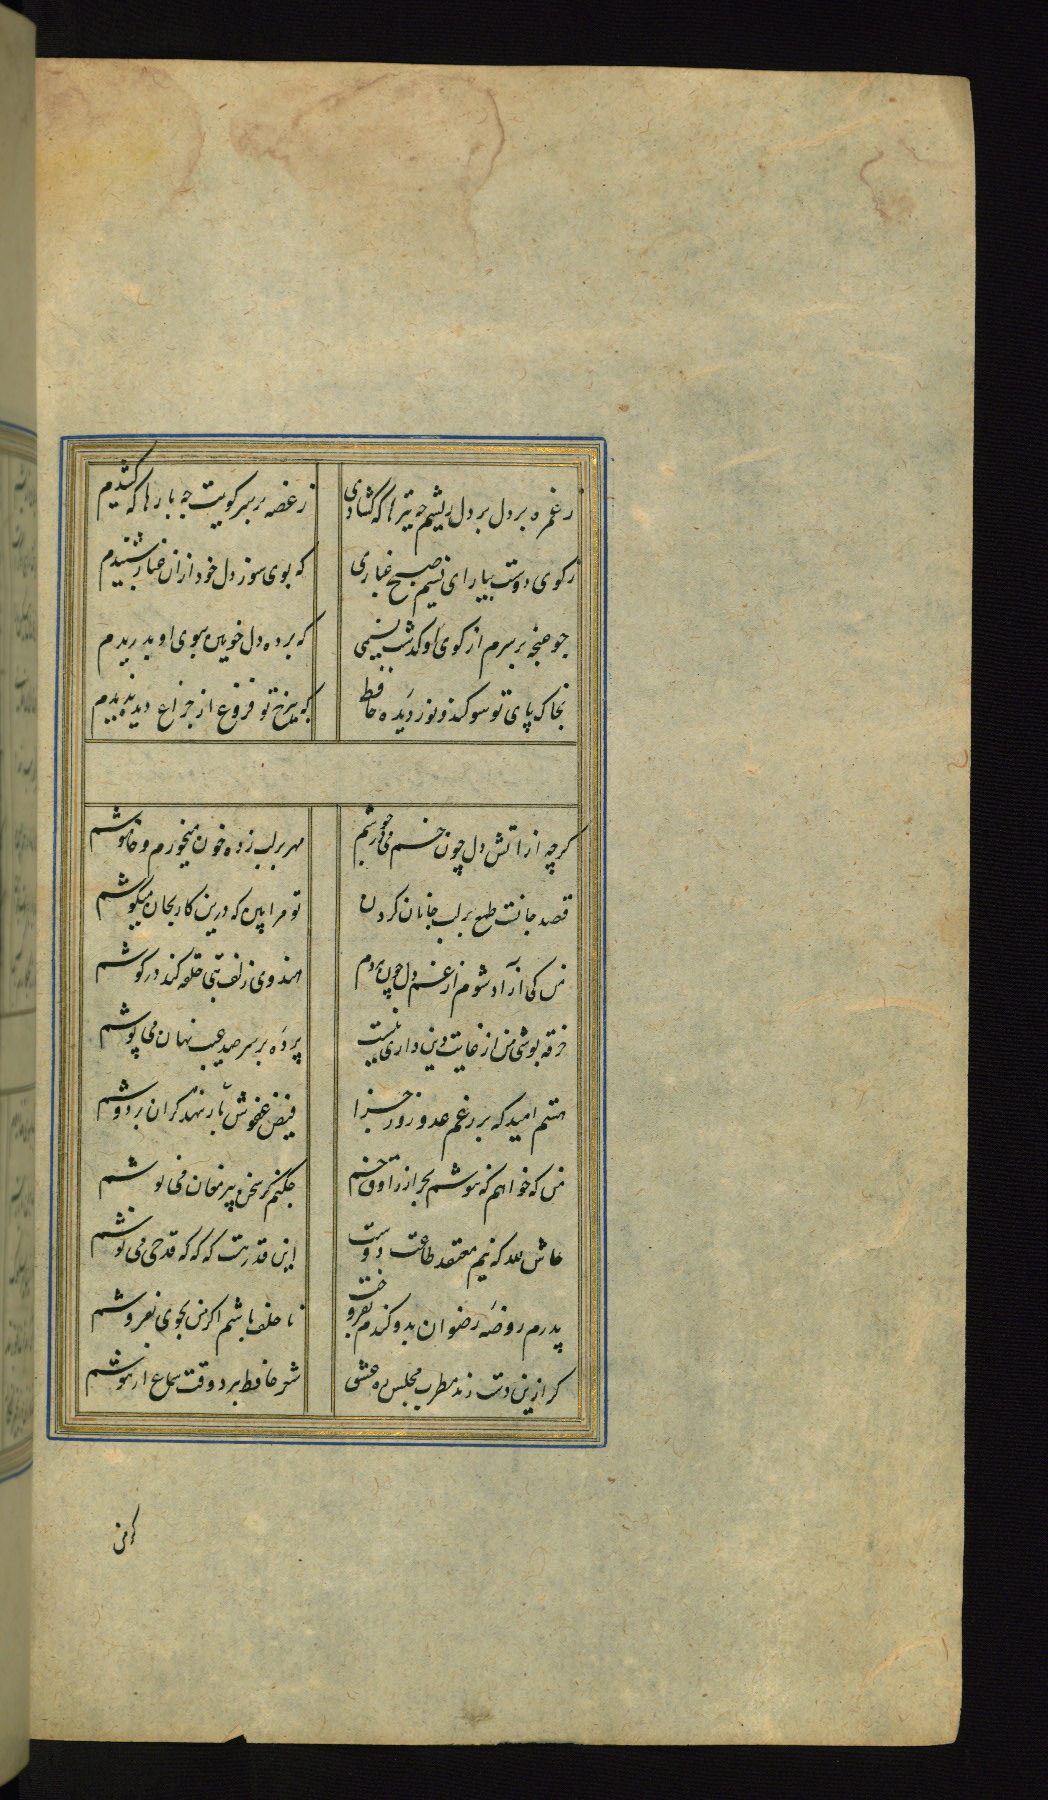 ز غمزه بر دل بر دل ریشم چه تیرها که گشادی ز غصه بر سر کویت چه بارها که کشیدم
ز کوی دوست بیار ای نسیم صبح غباری که بوی سوز دل خود ازان غبار شنیدم
جو غنجه بر سرم از کوی او گذشت نسیمی که برده دل خونین بوی او بدریدم
بخاک پای تو سوکند و نور دیده حافظ که بی رخ تو فروغ از جراغ دیده ندیدم
کرچه از اتش دل چون خم می در جوشم مهر بر لب زده خون میخورم و خاموشم
قصد جانست طمع بر لب جانان کردن تو مرا بین که درین کار بجان میکوشم
من کی ازاد شوم از غم دل چون هر دم هندوی زلف بتی حلقه کند در کوشم
خرقه بوشی من از غایت دین داری نیست پرده بر سر صد عیب نهان می پوشم
هستم امید که بر رغم عدو روز جزا فیض عفوش ننهد بار کران بر دوشم
من که خواهم که ننوشم بجز از راوق خم جکنم کر سخن پیر مغان می نوشم
حاش لله که نیم معتقد طاعت دوست این قدر هست که که که قدحی می نوشم
پدرم روضه رضوان بدو کندم بفروخت ناخلف باشم اکر من بجوی نفروشم
کر ازین دست زند مطرب مجلس ره عشق شعر حافظ برد وقت سماع از هوشم
کر من